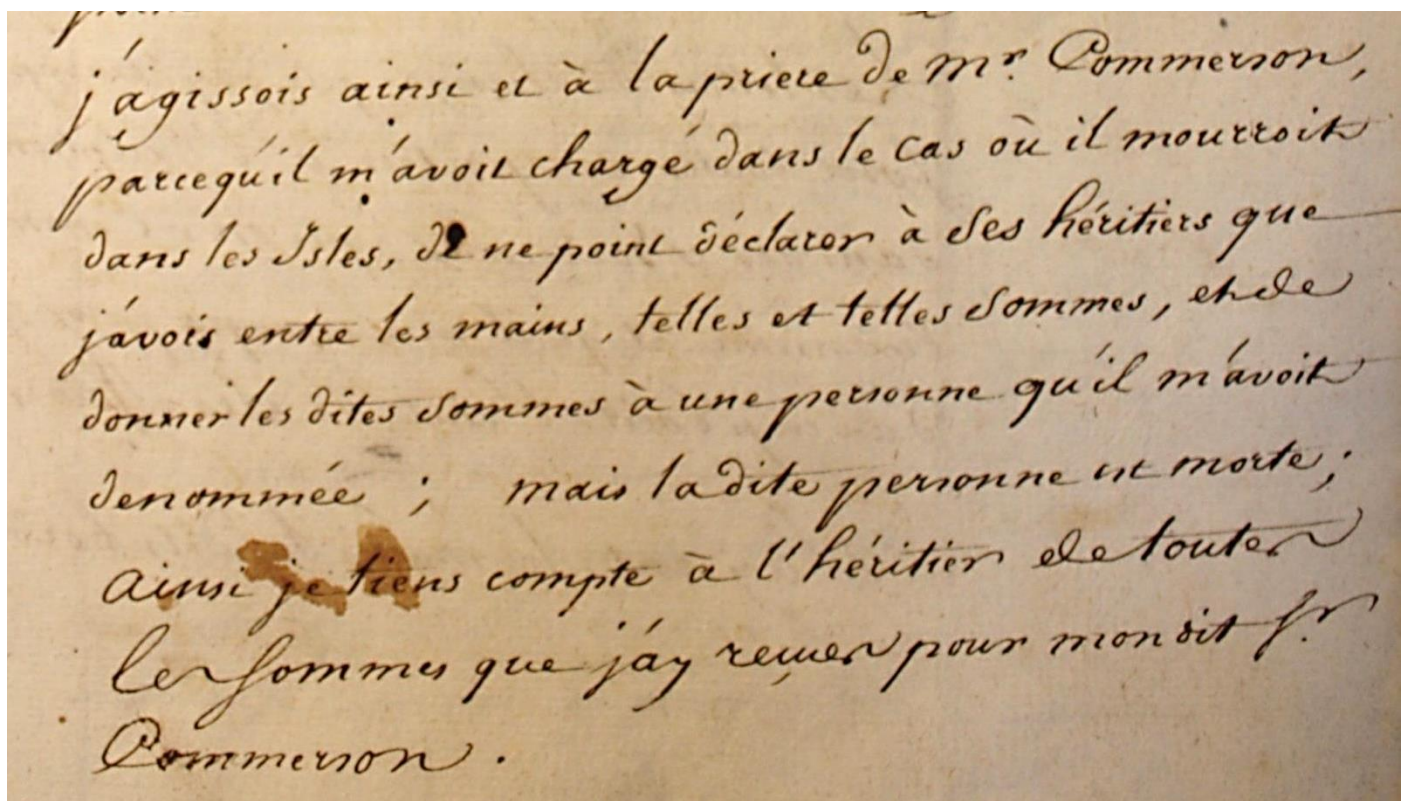 j'agissois ainsi et à la priere de Mr. Commerson,
parcequ'il m'avoit chargé dans le cas où il mourroit
dans les Isles, de ne point déclarer à ses héritiers que
j'avois entre les mains, telles et telles sommes, et de
donner les dites sommes à une personne qu'il m'avoit
denommée ; mais la dite personne est morte ;
ainsi je tiens compte à l'héritier de toutes
les sommes que j'ay reçues pour mon dit Sr.
Commerson.